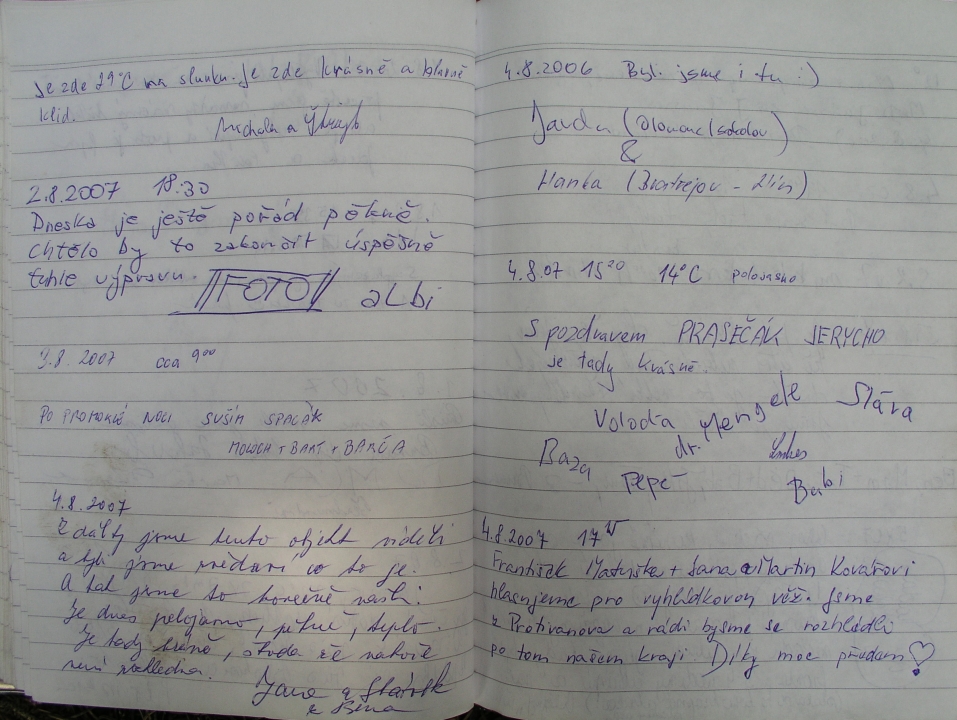 Je zde 29°C na slunku. Je zde krásně a hlavně
klid.
Michala a
2.8.2007 18:30
Dneska je ještě pořád pěkně.
Chtělo by to zakončit úspěšně
tuhle výpravu.
FOTO albi
3.8.2007 cca 9⁰⁰
PO PROMOKLÉ NOCI SUŠÍM SPACÁK
MOLOCH + BART + BARČA
4.8.2007
Z dálky jsme tento objekt viděli
a byli jsme zvědaví co to je.
A tak jsme to konečně našli.
Je dnes polojasno, pěkně, teplo.
Je tady krásně, škoda že nahoře
není rozhledna.
Jana a
a
4.8.2006 Byli jsme i tu :)
Jarda (Olomouc/sokolov)
&
Hanka (Bratřejov - Zlín)
4.8.07 15²⁰ 14°C polojasno
S pozdravem PRASEČÁK JERYCHO
je tady krásně.
Voloda dr. Mengele Sláva
Baza Pepé Babi
4.8.2007 17
František Matuška + Jana a Martin Kovářovi
hlasujeme pro vyhlídkovou věž. Jsme
z Protivanova a rádi bysme se rozhlédli
po tom našem kraji Díky moc předem ♡!